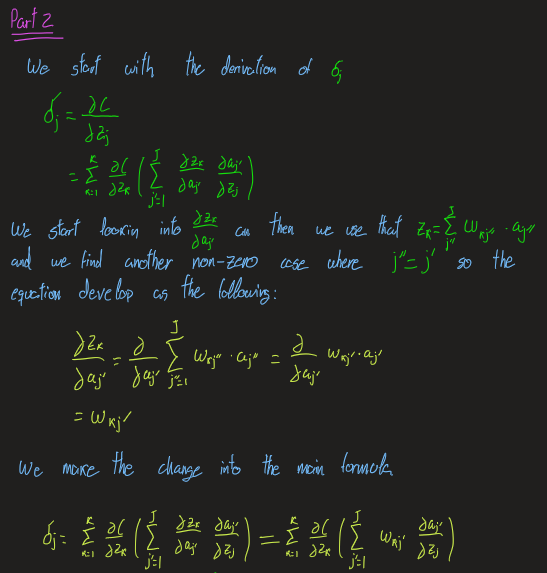 Part 2
We start with the derivation of δⱼ
δⱼ = ∂C/∂zⱼ
= Σ_{k=1}^{K} ∂C/∂z_k ( Σ_{j'=1}^{J} ∂z_k/∂a_{j'} ∂a_{j'}/∂z_j )
We start lookin into ∂z_k/∂a_{j'} can then we use that z_k = Σ_{j''}^{J} w_{kj''} · a_{j''}
and we find another non-zero case where j'' = j' so the
equation develop as the following:
∂z_k/∂a_{j'} = ∂/∂a_{j'} Σ_{j''=1}^{J} w_{kj''} · a_{j''} = ∂/∂a_{j'} w_{kj'} · a_{j'}
= w_{kj'}
We make the change into the main formula
δⱼ = Σ_{k=1}^{K} ∂C/∂z_k ( Σ_{j'=1}^{J} ∂z_k/∂a_{j'} ∂a_{j'}/∂z_j ) = Σ_{k=1}^{K} ∂C/∂z_k ( Σ_{j'=1}^{J} w_{kj'} ∂a_{j'}/∂z_j )